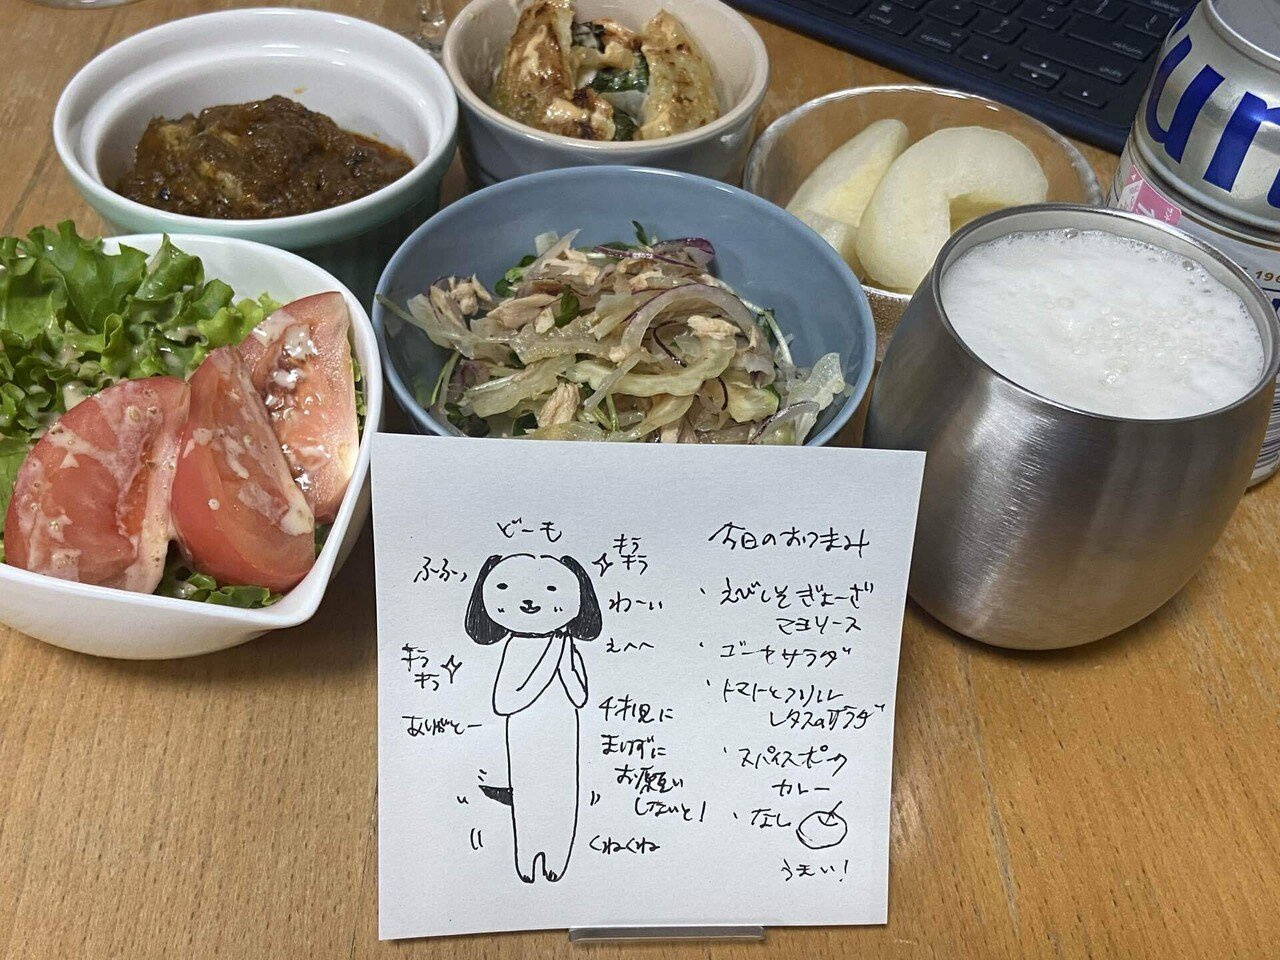 どーも
ふふっ
キラ
キラ
わーい
えへへ
キラ
キラ
ありがとー
まけずに
お願い
しないと!
くねくね
今日のおつまみ
・えびしそぎょーざ
マヨソース
・ゴーヤサラダ
・トマトとフリル
レタスのサラダ
・スパイスポーク
カレー
・なし
うまい!
option
command